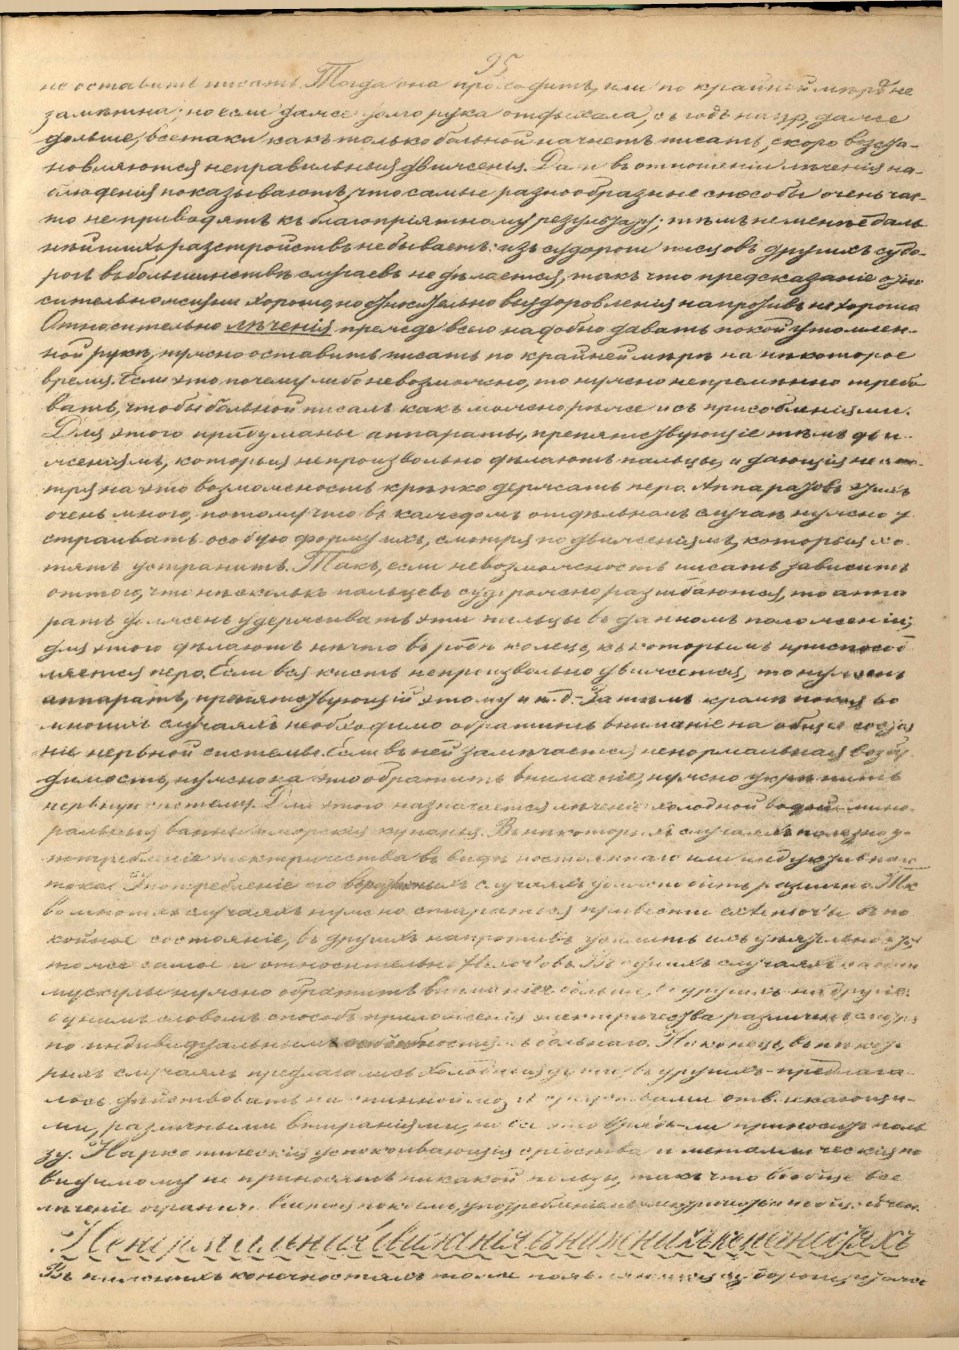 95
не оставитъ писать. Тогда она проходитъ, или по крайней мѣрѣ не
замѣтна; но если даже долго рука отдыхала, съ годъ напр, даже
дольше, всетаки какъ только больной начнетъ писать, скоро возста-
новляются неправильныя движенья. Да и въ отношеніи лѣченія на-
блюденія показываютъ, что самые разнообразные способы очень час-
то не приводятъ къ благопріятному результату; тѣмъ не менѣе даль
нѣйшихъ разстройствъ небываетъ: изъ судороги писцовъ другихъ судо-
рогъ въ большинствѣ случаевъ не дѣлается, такъ что предсказаніе отно
сительно жизни хорошо, но относительно выздоровленія напротивъ не хорошо
Относительно лѣченія прежде всего надобно давать покой утомлен-
ной рукѣ, нужно оставить писать по крайней мѣрѣ на нѣкоторое
время. Если это почему либо невозможно, то нужно непремѣнно требо
вать, чтобы больной писалъ какъ можно рѣже и съ присобленіями.
Для этого придуманы аппараты, препятствующіе тѣмъ дви-
женіямъ, которыя непроизвольно дѣлаютъ пальцы, и дающія не смо-
тря на это возможность крѣпко держать перо. Аппаратовъ этихъ
очень много, потому что въ каждомъ отдѣльномъ случаѣ нужно у
страивать особую форму ихъ, смотря по движеніямъ, которыя хо
тятъ устранить. Такъ, если невозможность писать зависитъ
оттого, что нѣсколько пальцевъ судорожно разгибаются, то аппа
ратъ долженъ удерживать эти пальцы въ данномъ положеніи;
для этого дѣлаютъ нѣчто въ родѣ колецъ, къ которымъ приспособ
ляется перо. Если вся кисть непроизвольно движется, то нуженъ
аппаратъ, препятствующій этому и т.д. Затѣмъ кромѣ покоя во
многихъ случаяхъ необходимо обратить вниманіе на общее состоя
ніе нервной системы. Если въ ней замѣчается ненормальная возбу
димость, нужно на это обратить вниманіе, нужно укрѣпить
нервную систему. Для этого назначается лѣченіе холодной водой, мине-
ральныя ванны и морскія купанья. Въ нѣкоторыхъ случаяхъ полезно у-
потребленіе электричества въ видѣ постояннаго или индуктивнаго
тока. Употребленіе его въ случаяхъ должно быть различно. Такъ
во многихъ случаяхъ нужно стараться привести extensor'ы въ по
койное состояніе, въ другихъ напротивъ усилить ихъ дѣятельность,
тоже самое и относительно flexor'овъ. Въ однихъ случаяхъ на одни
мускулы нужно обратить вниманіе больше, въ другихъ на другіе.
Однимъ словомъ способъ приложенія электричества различенъ смотря
по индивидуальнымъ особенностямъ больнаго. Наконецъ, въ нѣкото-
рыхъ случаяхъ предлагались холодные души, въ другихъ предлага-
лось дѣйствовать на спинной мозгъ средствами отвлекающи-
ми, различными втираніями, но все это врядъ-ли приноситъ поль
зу. Наркотическія успокоивающія средства и металлическія по
видимому не приносятъ никакой пользы, такъ что вообще все
лѣченіе огранич. вается покоемъ, употребленіемъ электричества
Ненормальныя движенія въ нижнихъ конечностяхъ
Въ нижнихъ конечностяхъ тоже появляются судороги